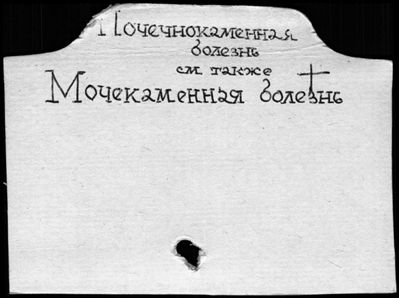 Почечнокаменная
болезнь
см. также
Мочекаменная болезнь